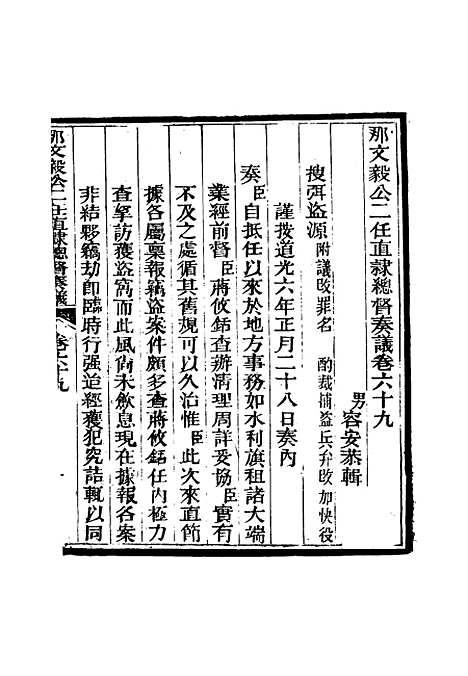 那文毅公二任直隸總督奏議卷六十九
男容安恭輯
搜弭盜源附議改罪名 酌裁捕盜兵弁改加快役
謹按道光六年正月二十八日奏內
奏臣自抵任以來於地方事務如水利旗租諸大端
業經前督臣蔣攸銛查辦清理周詳妥協臣實有
不及之處循其舊規可以久治惟臣此次來直節
據各屬稟報竊盜案件頗多查蔣攸銛任內極力
查拏訪獲盜窩而此風尚未歛息現在據報各案
非結夥竊劫卽臨時行强迨經獲犯究詰輒以同
那文毅公二任直隸總督奏議 卷六十九